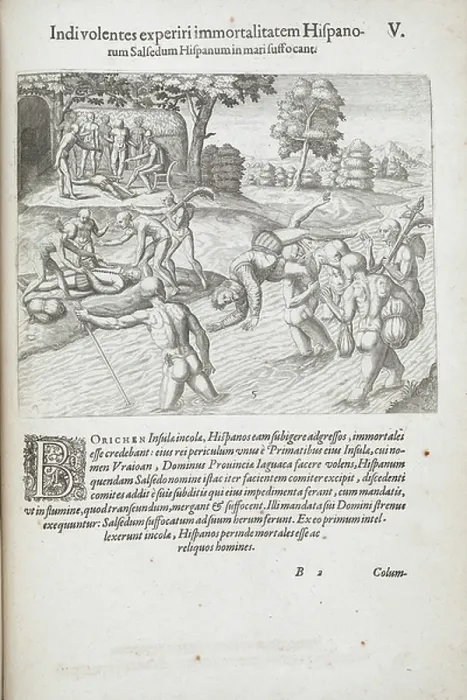 Indi volentes experiri immortalitatem Hispano- V.
rum Salsedum Hispanum in mari suffocant.
5
BORICHEN Insulæ incolæ, Hispanos eam subigere adgressos, immortales
esse credebant: eius rei periculum vnus è Primatibus eius Insulæ, cui no-
men Vraioan, Dominus Prouinciæ Iaguaca facere volens, Hispanum
quendam Salsedo nomine istac iter facientem comiter excipit, discedenti
comites addit è suis subditis qui eius impedimenta ferant, cum mandatis,
vt in flumine, quod transeundum, mergant & suffocent. Illi mandata sui Domini strenue
exequuntur: Salsedum suffocatum ad suum herum ferunt. Ex eo primum intel-
lexerunt incolæ, Hispanos perinde mortales esse ac
reliquos homines.
B 2 Colum-